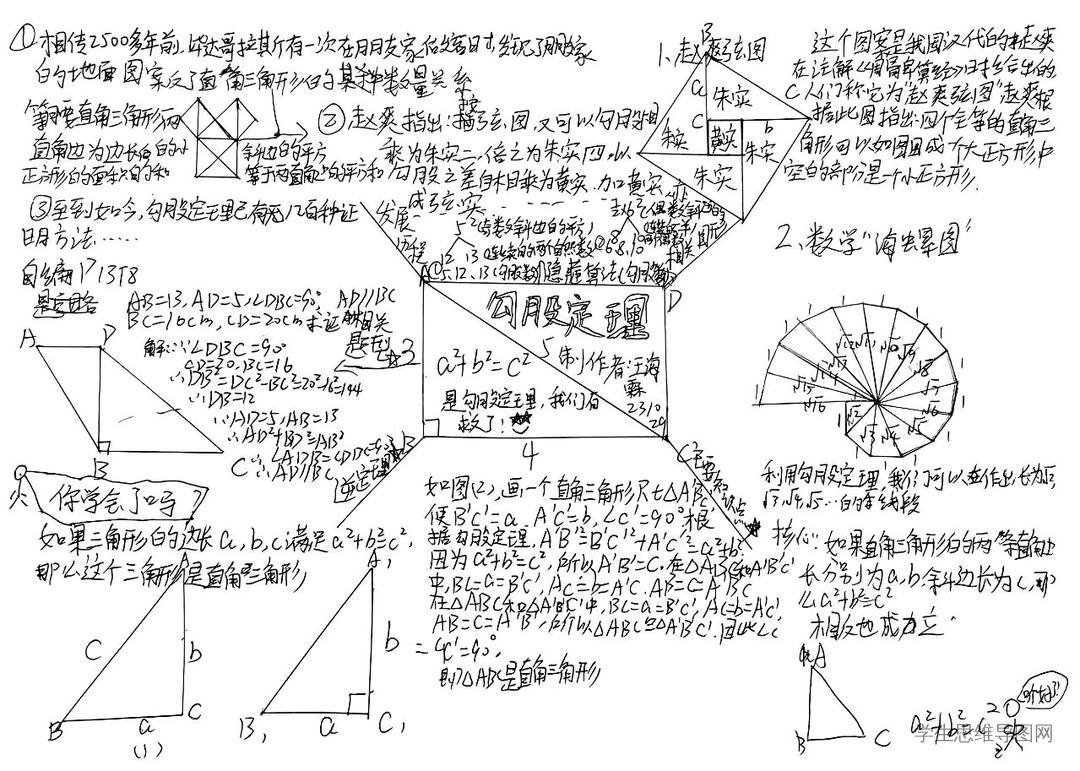 ①相传2500多年前,毕达哥拉斯有一次在朋友家作客时,发现了朋友家
的地面图案反了直角三角形的某种数量关系
等腰直角三角形两
直角边为边长的小
正方形的面积的和
斜边的平方
等于两直角边的平方和
②赵爽指出:按弦图,又可以勾股相
乘为朱实二,倍之为朱实四,以
勾股之差自相乘为黄实,加黄实,亦
成弦实
③至到如今,勾股定理已有几百种证
明方法……
发展
历程
1、赵爽弦图
B
a
朱实
C
c
朱实
黄实
b
朱实
朱实
这个图案是我国汉代的赵爽
在注解《周髀算经》时给出的
人们称它为"赵爽弦图"赵爽根
据此图指出:四个全等的直角三
角形可以如图围成一个大正方形,中
空的部分是一个小正方形.
2、数学"海螺图"
√2
√3
√4
√5
√6
√7
√8
√9
√10
√11
√12
√13
√14
√15
√16
利用勾股定理,我们可以作出长为√2,
√3,√4,√5…的线段
自编 P13T8
思路
AB=13,AD=5,∠DBC=90° AD//BC
BC=16cm,CD=20cm求证
解:∵∠DBC=90°
CD=20,BC=16
∴DB²=DC²-BC²=20²-16²=144
∴DB=12
∵AD=5,AB=13
∴AD²+BD²=AB²
∴∠ADB=∠DBC=90°
∴AD//BC
A
D
B
C
相关
题型
3
A
D
B
C
勾股定理
a²+b²=c²
是勾股定理,我们有
救了!
5
制作者:汪海
霖
2310
29
4
逆定理
主要知识点
你学会了吗?
如果三角形的边长a,b,c满足a²+b²=c²,
那么这个三角形是直角三角形
A
c
b
B
a
C
(1)
A₁
b
B₁
a
C₁
如图(2),画一个直角三角形Rt△A'B'C'
使B'C'=a,A'C'=b,∠C'=90°根
据勾股定理,A'B'²=B'C'²+A'C'²=a²+b²
因为a²+b²=c²,所以A'B'=C,在△ABC和A'B'C'
中,BC=a=B'C',AC=b=A'C'.AB=C=A'B'C
在△ABC和△A'B'C'中,BC=a=B'C',AC=b=A'C',
AB=C=A'B',所以△ABC≌△A'B'C'.因此∠C
=∠C'=90°,
即△ABC是直角三角形
核心:如果直角三角形的两等直角边
长分别为a,b,斜边长为c,那
么a²+b²=c²
相反也成立
A
B
C
a²+b²=c²
学生思维导图网